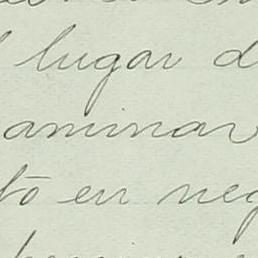 l lugar d
aminar
to en neg